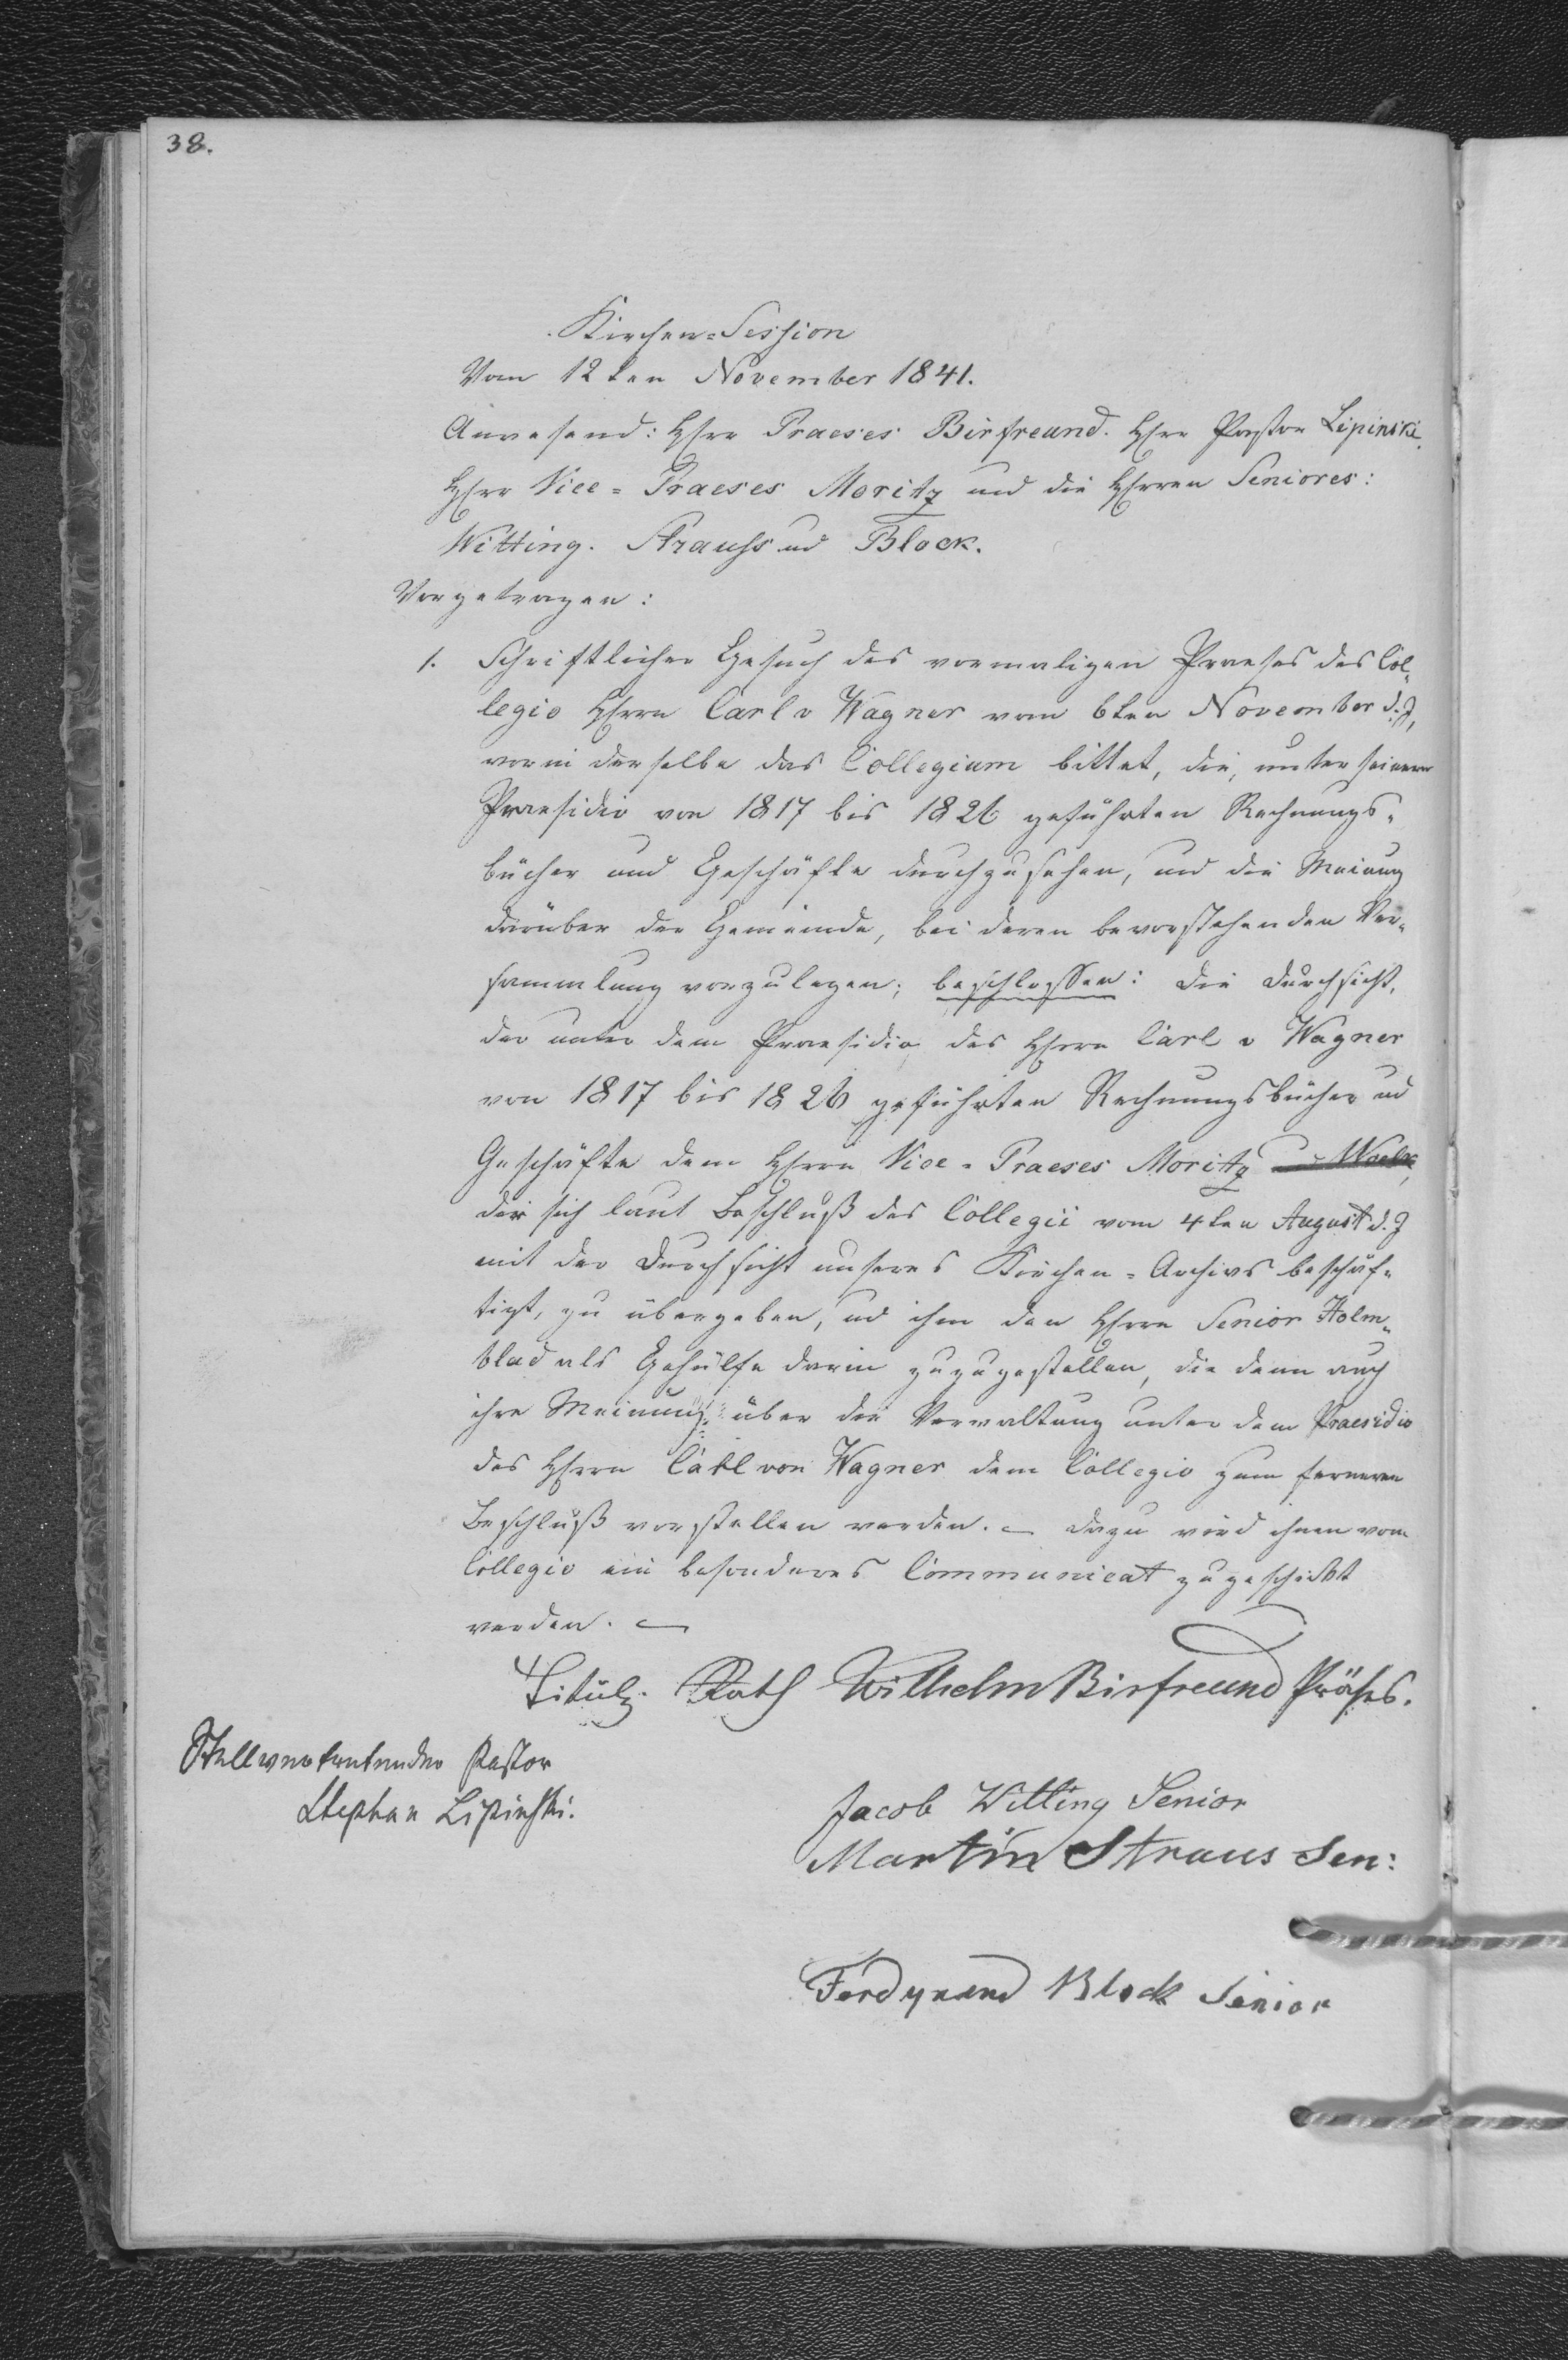 38.
Kirchen-Session
Vom 12ten November 1841.
Anwesend: Herr Praeses Birfreund. Herr Pastor Lipinski.
Herr Vice-Praeses Moritz und die Herren Seniores:
Witting. Strauss und Block.
Vorgetragen:
1. Schriftliches Gesuch des vormaligen Praeses des Col-
legio Herrn Carl v Wagner vom 6ten November d. J,
worin derselbe das Collegium bittet, die, unter seinem
Praesidio von 1817 bis 1826 geführten Rechnungs-
bücher und Geschäfte durchzusehen, und die Meinung
darüber der Gemeinde, bei deren bevorstehenden Ver-
sammlung vorzulegen; beschlossen: die Durchsicht,
der unter dem Praesidio des Herrn Carl v Wagner
von 1817 bis 1826 geführten Rechnungsbücher und
Geschäfte dem Herrn Vice-Praeses Moritz
der sich laut Beschluß des Collegii vom 4ten August d. J
mit der Durchsicht unseres Kirchen-Archivs beschäf-
tigt, zu übergeben, und ihm den Herrn Senior Holm-
blad als Gehülfe darin zuzugestellen, die dann auch
ihre Meinung über die Verwaltung unter dem Praesidio
des Herrn Carl von Wagner dem Collegio zum ferneren
Beschluß vorstellen werden. – Dazu wird ihnen vom
Collegio ein besonderes Communicat zugeschickt
werden. –
Titulz. Rath Wilhelm Birfreund Präses.
Stellvertretender Pastor
Stephan Lipinski.
Jacob Witting Senior
Martin Straus Sen:
Ferdynand Block Senior